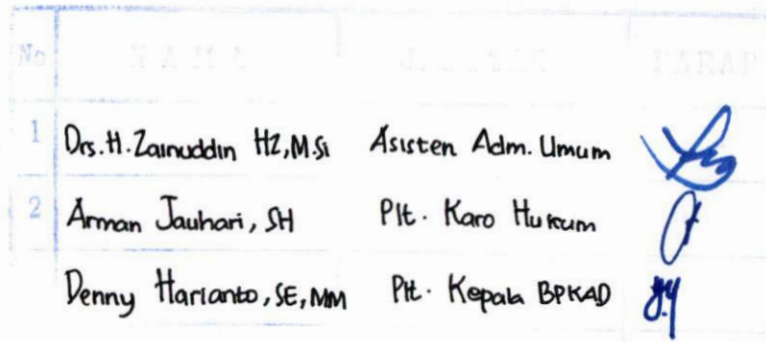 No NAMA JABATAN PARAF
1 Drs. H. Zainuddin HZ, M.Si Asisten Adm. Umum
2 Arman Jauhari, SH Plt. Karo Hukum
Denny Harianto, SE, MM Plt. Kepala BPKAD